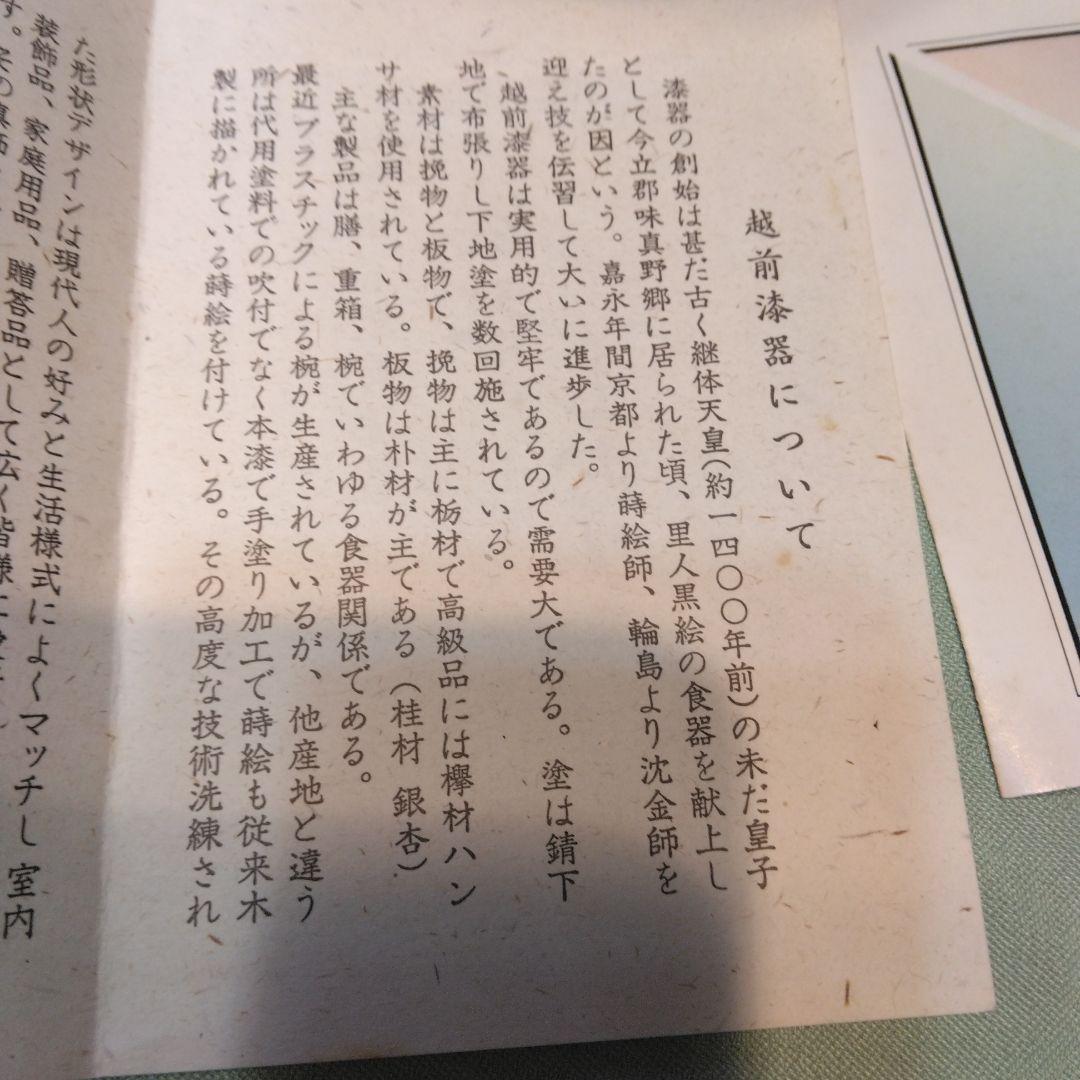 越前漆器について
漆器の創始は甚だ古く継体天皇(約一四〇〇年前)の未だ皇子
として今立郡味真野郷に居られた頃、里人黒絵の食器を献上し
たのが因という。嘉永年間京都より蒔絵師、輪島より沈金師を
迎え技を伝習して大いに進歩した。
越前漆器は実用的で堅牢であるので需要大である。塗は錆下
地で布張りし下地塗を数回施されている。
素材は挽物と板物で、挽物は主に栃材で高級品には欅材ハン
サ材を使用されている。板物は朴材が主である(桂材 銀杏)
主な製品は膳、重箱、椀でいわゆる食器関係である。
最近プラスチックによる椀が生産されているが、他産地と違う
所は代用塗料での吹付でなく本漆で手塗り加工で蒔絵も従来木
製に描かれている蒔絵を付けている。その高度な技術洗練され
た形状デザインは現代人の好みと生活様式によくマッチし室内
装飾品、家庭用品、贈答品として広く皆様に
す。